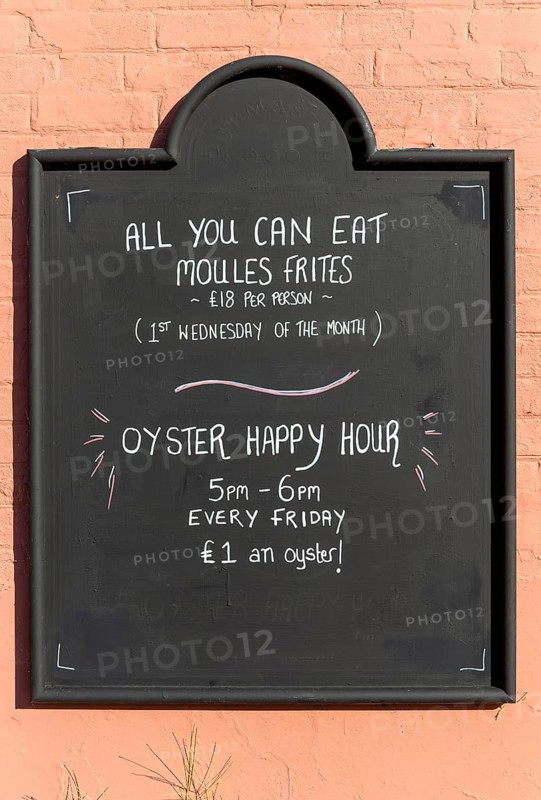 ALL YOU CAN EAT
MOULES FRITES
~ £18 PER PERSON ~
(1ST WEDNESDAY OF THE MONTH)
OYSTER HAPPY HOUR
5PM - 6PM
EVERY FRIDAY
£1 an oyster!
PHOTO12